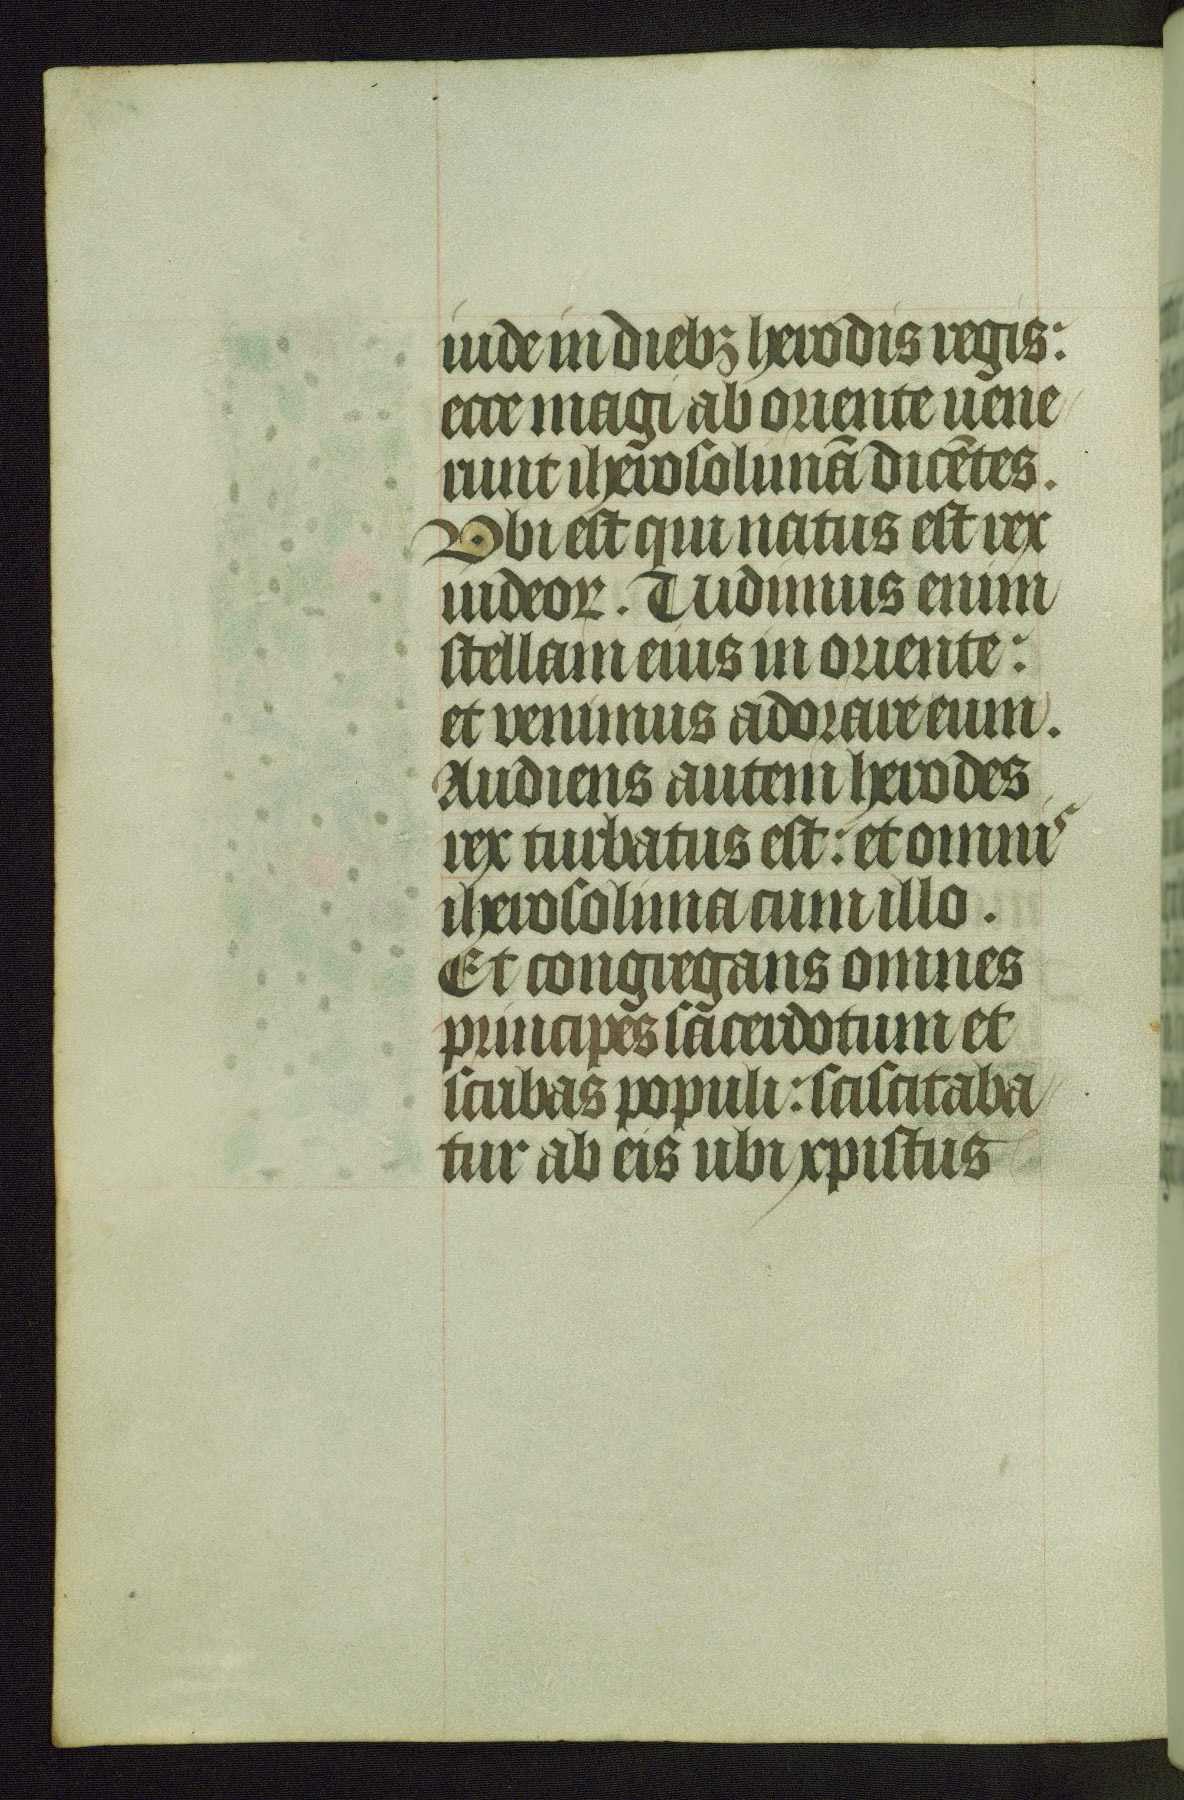 iude in dieb⁊ herodis regis:
ecce magi ab oriente uene
runt iherosolimā dicētes.
Vbi est qui natus est rex
iudeoꝝ. Uidimus enim
stellam eius in oriente:
et venimus adorare eum.
Audiens autem herodes
rex turbatus est: et omnis
iherosolima cum illo.
Et congregans omnes
principes sacerdotum et
scribas populi: sciscitaba
tur ab eis ubi xpistus